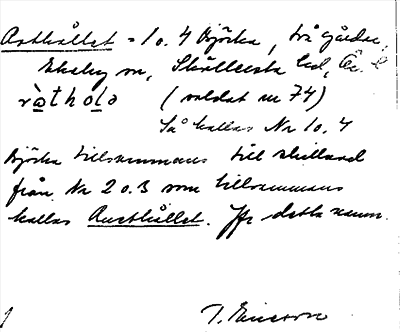 Rusthållet = 1 o. 4 Björka, två gårdar,
Ekeby sn, Sköllersta hd, Ör. l
ràthòlə (valdat nr 74)
Så kallas Nr 1 o. 4
Björka tillsammans till skillnad
från Nr 2 o. 3 som tillsammans
kallas Rusthållet. Jfr detta namn.
T. Ericsson